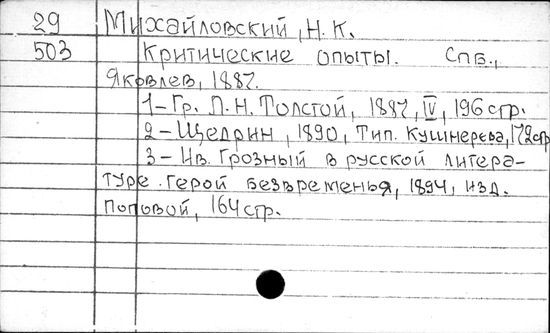 29 Михайловский, Н. К.
503 Критические опыты. Спб.,
Яковлев, 1887.
1- Гр. Л. Н. Толстой, 1887, IV, 196 стр.
2- Щедрин, 1890, Тип. Кушнерева, 172 стр
3- Ив. Грозный в русской литера-
туре. Герой безвременья, 1894, изд.
Поповой, 164 стр.